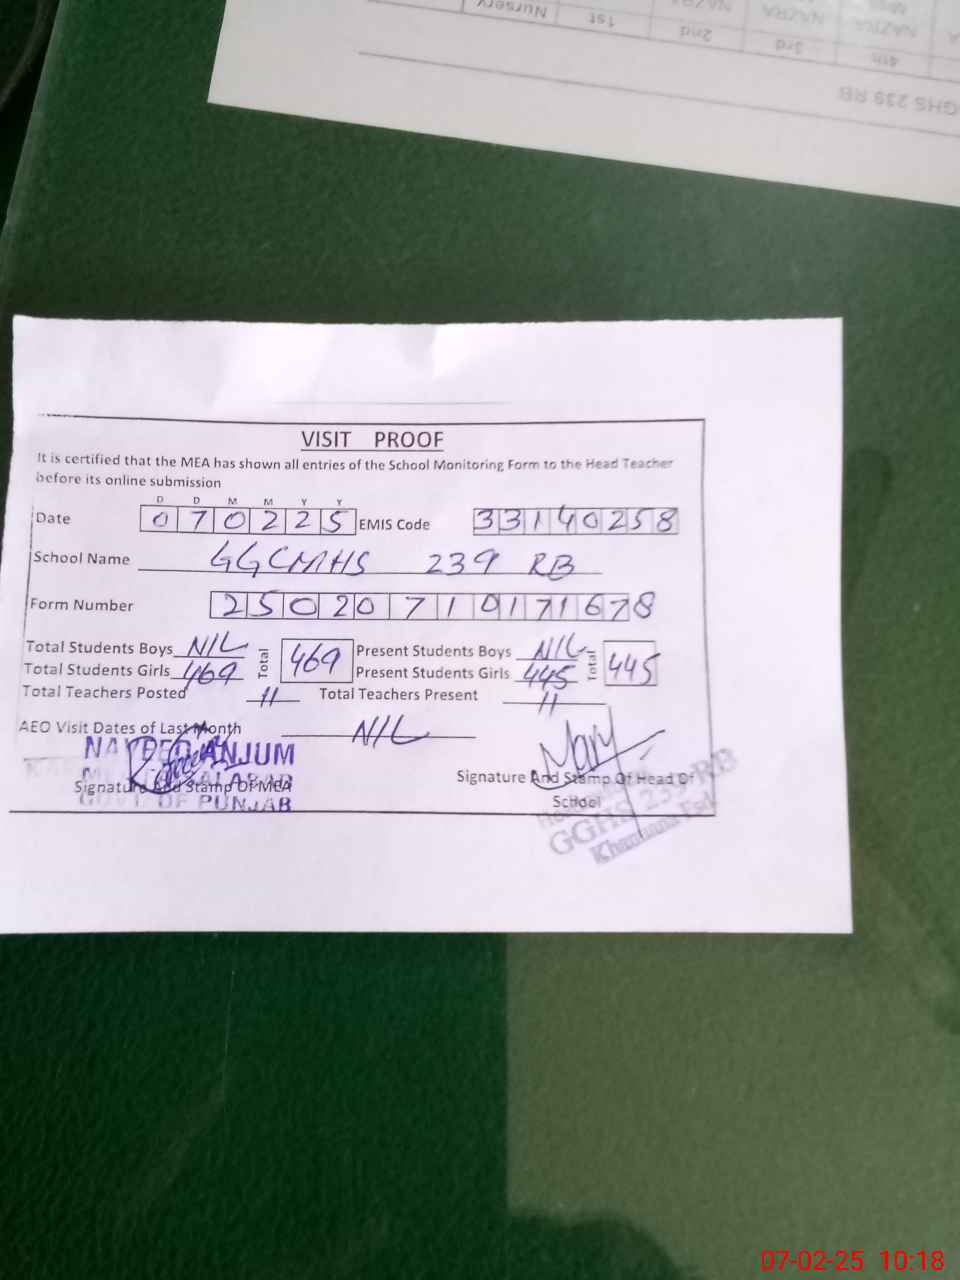 Nursery 1st 2nd 3rd 4th
NAZRA NAZRA
GHS 239 RB
VISIT PROOF
It is certified that the MEA has shown all entries of the School Monitoring Form to the Head Teacher
before its online submission
D D M M Y Y
Date 0 7 0 2 2 5 EMIS Code 3 3 1 4 0 2 5 8
School Name GGCMHS 239 RB
Form Number 2 5 0 2 0 7 1 0 1 7 1 6 7 8
Total Students Boys NIL Total 469 Present Students Boys NIL Total 445
Total Students Girls 469 Present Students Girls 445
Total Teachers Posted 11 Total Teachers Present 11
AEO Visit Dates of Last Month NIL
NAVEED ANJUM
Signature And Stamp Of MEA
GOVT. OF PUNJAB
Signature And Stamp Of Head Of
School
GGHS 239 RB
07-02-25 10:18